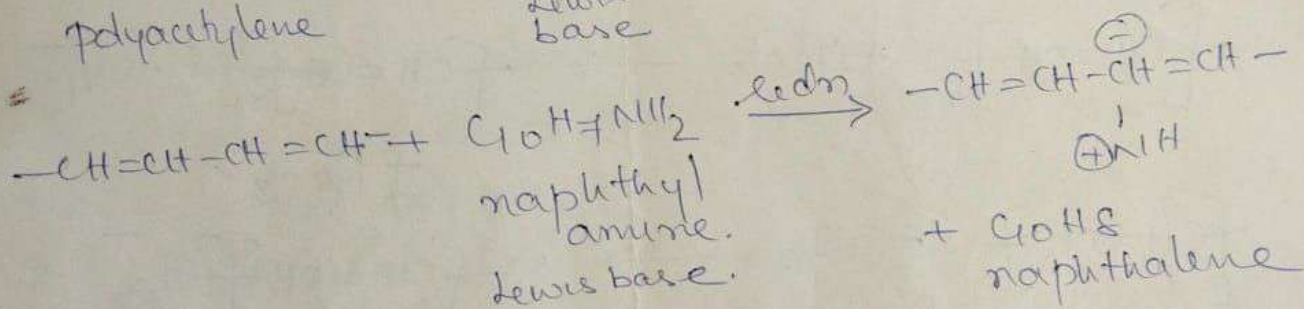 polyacetylene
base
redn
-CH=CH-CH=CH- + C10H7NH2 → -CH=CH-CH=CH-
⊖
⊕NH
naphthyl
amine.
Lewis base.
+ C10H8
naphthalene